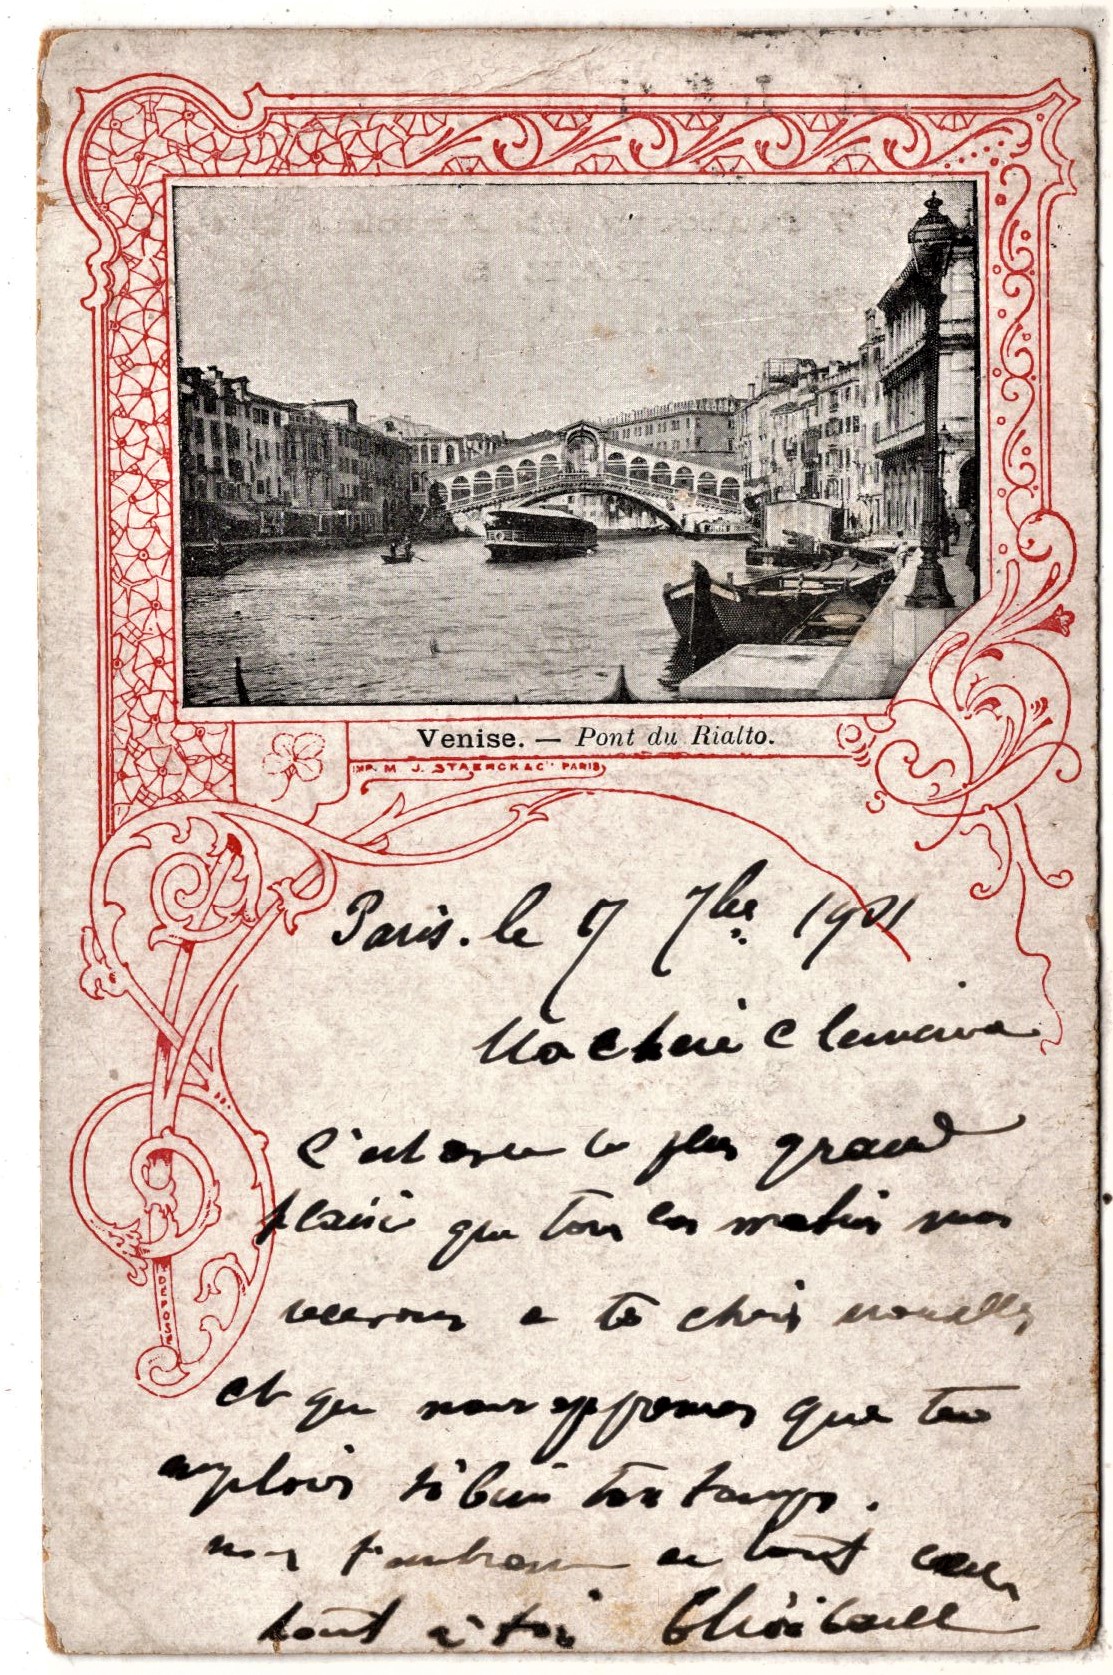 Venise. — Pont du Rialto.
IMP. M. J. STAERCK & Cie PARIS
Paris. le 7 7bre 1901
Ma chère Clemence
C'est avec le plus grand
plaisir que tous les matins nous
recevons de tes chères nouvelles
et que nous apprenons que tu
emploies si bien ton temps.
nous t'embrassons de tout cœur
tout à toi
DEPOSÉ